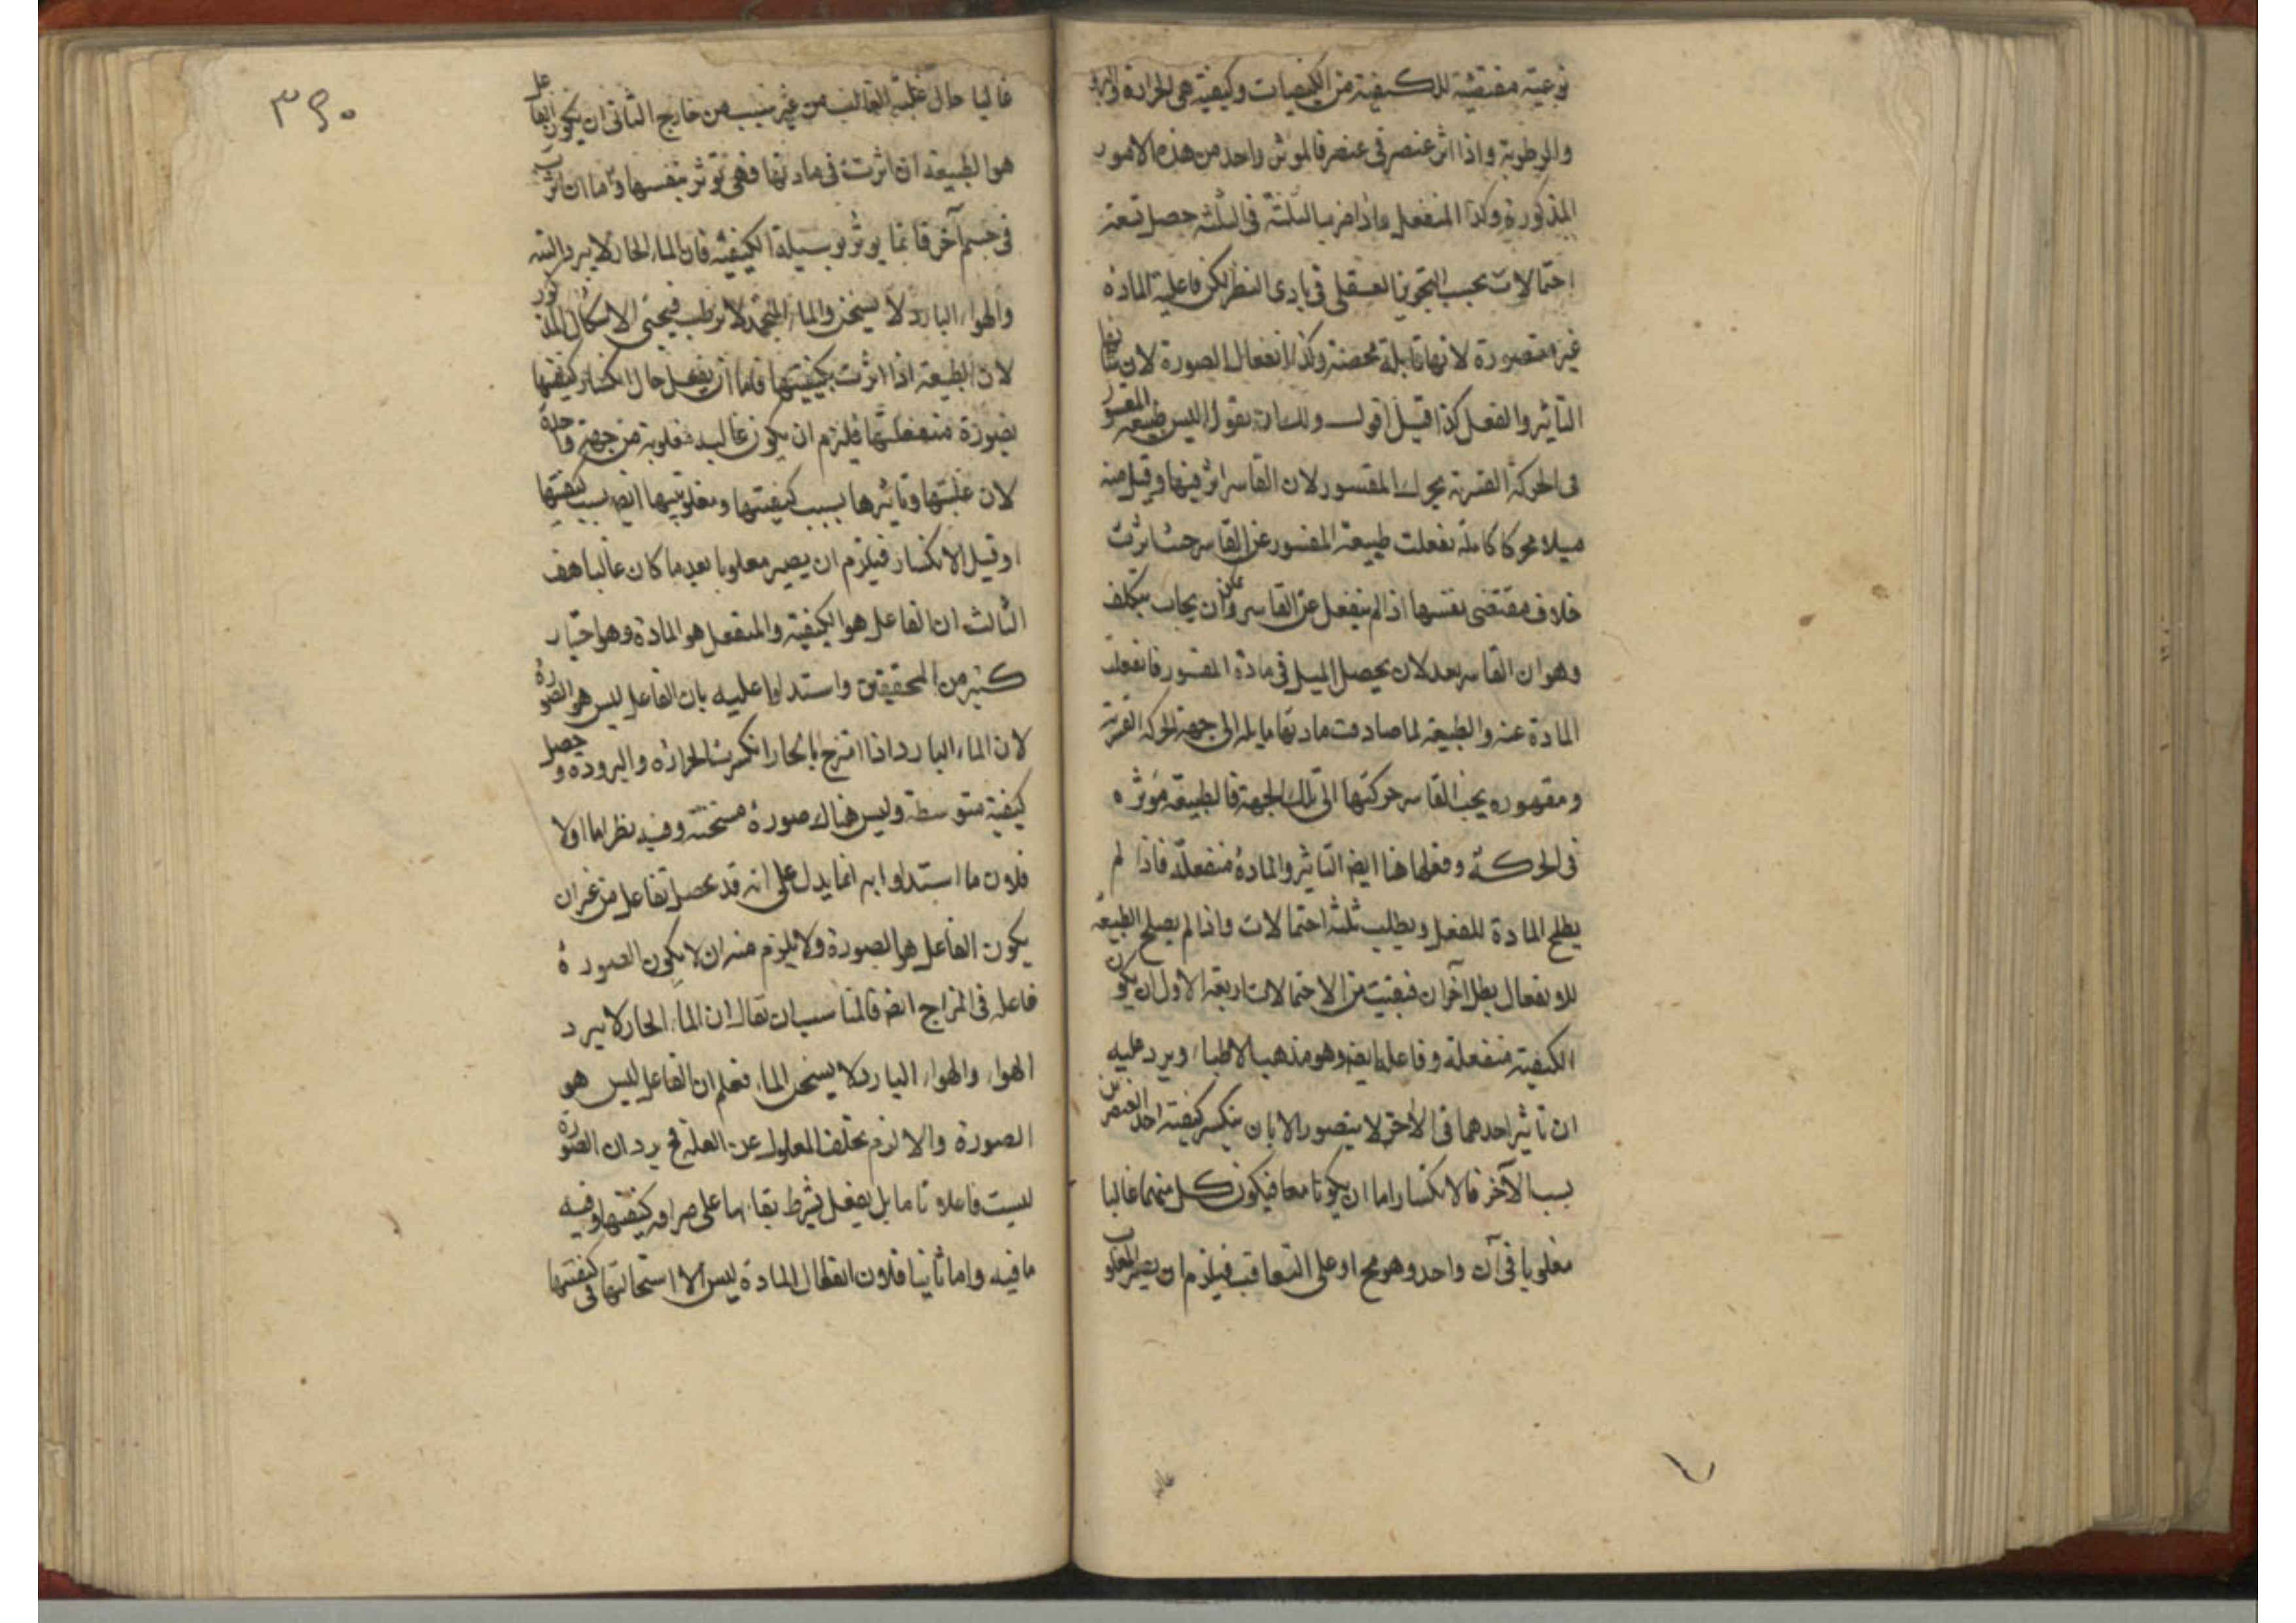 نوعية مقتضية للكيفية من الكيفيات وكيفية هى الحرارة والبرودة
والرطوبة واذا اثر عنصر فى عنصر فالموثر واحد من هذه الامور
المذكورة وكذا المنفعل واذا ضربنا الثلثة فى الثلثة حصل تسعة
احتمالات بحسب التجويز العقلى فى بادى النظر لكن فاعلية المادة
غير متصورة لانها قابلة محضة وكذا انفعال الصورة لان شانها
التاثير والفعل كذا قيل اقول ولك ان تقول اليس طبيعة المقسور
فى الحركة القسرية يحرك المقسور لان القاسر اثر فيها وقبل منه
ميلا محركا كاملة نفعلت طبيعة المقسور عن القاسر حيث اثرت
خلاف مقتضى نفسها اذ لم ينفعل عن القاسر ويمكن ان يجاب بتكلف
وهو ان القاسر بعد لان يحصل الميل فى مادة المقسور فانفعلت
المادة عنه والطبيعة لما صادفت مادتها مايلة الى جهة الحركة القسرية
ومقهوره يجب القاسر حركتها الى تلك الجهة فالطبيعة موثره
فى الحركة وفعلها هنا ايضا التاثير والمادة منفعلة فاذا لم
يصلح المادة للفعل ويطلب ثلثة احتمالات واذا لم يصلح الطبيعة
للانفعال بطل آخران فبقيت من الاحتمالات اربعة الاول ان يكون
الكيفية منفعلة وفاعلة ايضا وهو مذهب الاطباء ويرد عليه
ان تاثير احدهما فى الآخر لا يتصور الا بان ينكسر كيفية احد العنصرين
بسبب الآخر فالانكسار اما ان يكونا معا فيكون كل منهما غالبا
مغلوبا فى آن واحد وهو مح او على التعاقب فيلزم ان يصير المغلوب
غالبا
٣٤٠
غالبا حال غلبة الغالب من غير سبب من خارج الثانى ان يكون الفاعل
هو الطبيعة ان اثرت فى مادتها فهى توثر بنفسها واما ان اثرت
فى جسم آخر فانما يوثر بوسيلة الكيفية فان الماء الحار لا يبرد البتة
والهواء البارد لا يسخن والماء المنجمد لا يرطب فيجئ الاشكال المذكور
لان الطبيعة اذا اثرت بكيفيتها فاما ان يفعل حال انكسار كيفيتها
بصورة منفعلتها فلزم ان يكون غالبة مغلوبة من جهة واحدة
لان غلبتها وتاثيرها بسبب كيفيتها ومغلوبيتها ايضا بسبب كيفيتها
او قبل الانكسار فيلزم ان يصير مغلوبا بعد ما كان غالبا هف
الثالث ان الفاعل هو الكيفية والمنفعل هو المادة وهو اختيار
كثير من المحققين واستدلوا عليه بان الفاعل ليس هو الصورة
لان الماء البارد اذا امتزج بالحار انكسرت الحرارة والبرودة وحصل
كيفية متوسطة وليس هناك صورة مسخنة وفيه نظر اما اولا
فلان ما استدلوا به انما يدل على انه قد يحصل تفاعل من غير ان
يكون الفاعل هو الصورة ولا يلزم منه ان لا يكون الصورة
فاعلة فى المزاج ايضا فالمناسب ان يقال ان الماء الحار لا يبرد
الهواء والهواء البارد لا يسخن الماء فعلم ان الفاعل ليس هو
الصورة والا لزم تخلف المعلول عن العلة فح يرد ان الصورة
ليست فاعلا تاما بل يفعل بشرط بقائها على صرافة كيفيتها وفيه
ما فيه واما ثانيا فلان انفعال المادة ليس الا استحالتها فى كيفيتها